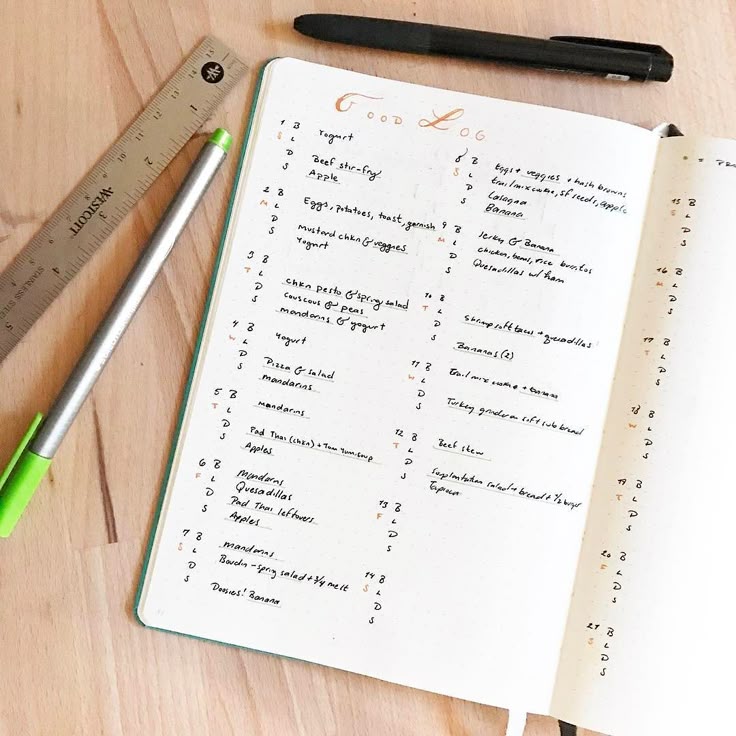 WESTCOTT
STAINLESS STEEL
Good Log
1 B Yogurt
S L
D Beef stir-fry
S Apple
2 B Eggs, potatoes, toast, garnish
M L
D Mustard chkn & veggies
S Yogurt
3 B
T L
D chkn pesto & spring salad
S couscous & peas
mandarins & yogurt
4 B Yogurt
W L
D Pizza & salad
S mandarins
5 B mandarins
T L
D Pad Thai (chkn) + Tom Yum soup
S Apples
6 B Mandarins
F L Quesadillas
D Pad Thai leftovers
S Apples
7 B mandarins
S L Boudin - spring salad + 3/4 melt
D
S Doosies! Banana
8 B Eggs + veggies + hash browns
S L trail mix cookie, sf seeds, apple
D Lasagna
S Banana
9 B Jerky & Banana
M L chicken, beans, rice burritos
D Quesadillas w/ ham
S
10 B
T L
D Shrimp soft tacos + quesadillas
S Bananas (2)
11 B trail mix cookie + banana
W L
D Turkey grinder on soft sub bread
S
12 B Beef stew
T L
D Surplantation salad + bread + 1/2 burger
S Tapioca
13 B
F L
D
S
14 B
S L
D
S
15 B
S L
D
S
16 B
M L
D
S
17 B
T L
D
S
18 B
W L
D
S
19 B
T L
D
S
20 B
F L
D
S
21 B
S L
D
S